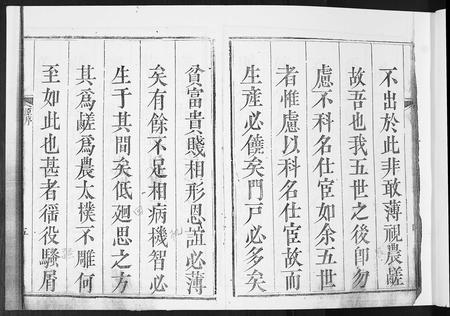 不出於此非敢薄視農鹺
故吾也我五世之後卽勿
慮不科名仕宦如余五世
者惟慮以科名仕宦故而
生産必儉矣門戸必多矣
貧富貴賤相形恩誼必薄
矣有餘不足相病機智必
生于其間矣低廻思之方
其爲鹺爲農太樸不雕何
至如此也甚者徭役騷屑
序
五